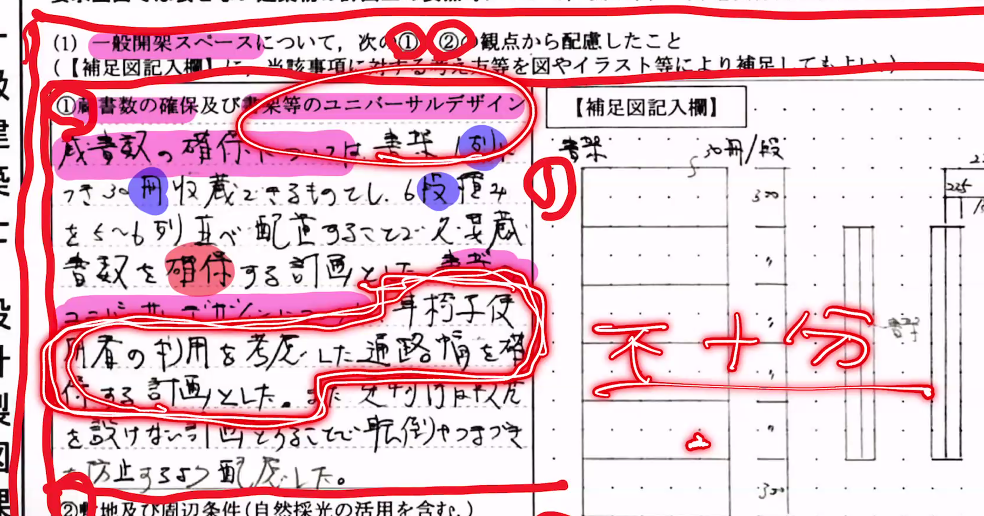 (1) 一般開架スペースについて，次の①，②の観点から配慮したこと
(【補足図記入欄】に，当該事項に対する考え方等を図やイラスト等により補足してもよい.)
①蔵書数の確保及び書架等のユニバーサルデザイン
【補足図記入欄】
蔵書数の確保については書架1列に
つき30冊収蔵できるものてし.6段積み
を5~6列並べ配置することで必要蔵
書数を確保する計画とした.書架
ユニバーサルデザインについ 車椅子使
用者の利用を考慮した通路幅を確
保する計画とした。また足元には段差
を設けない計画とすることで転倒やつまづき
を防止するよう配慮した。
書架
30冊/段
300
〃
〃
〃
〃
300
225
不十分
②敷地及び周辺条件(自然採光の活用を含む.)
級建築士
設計製図課